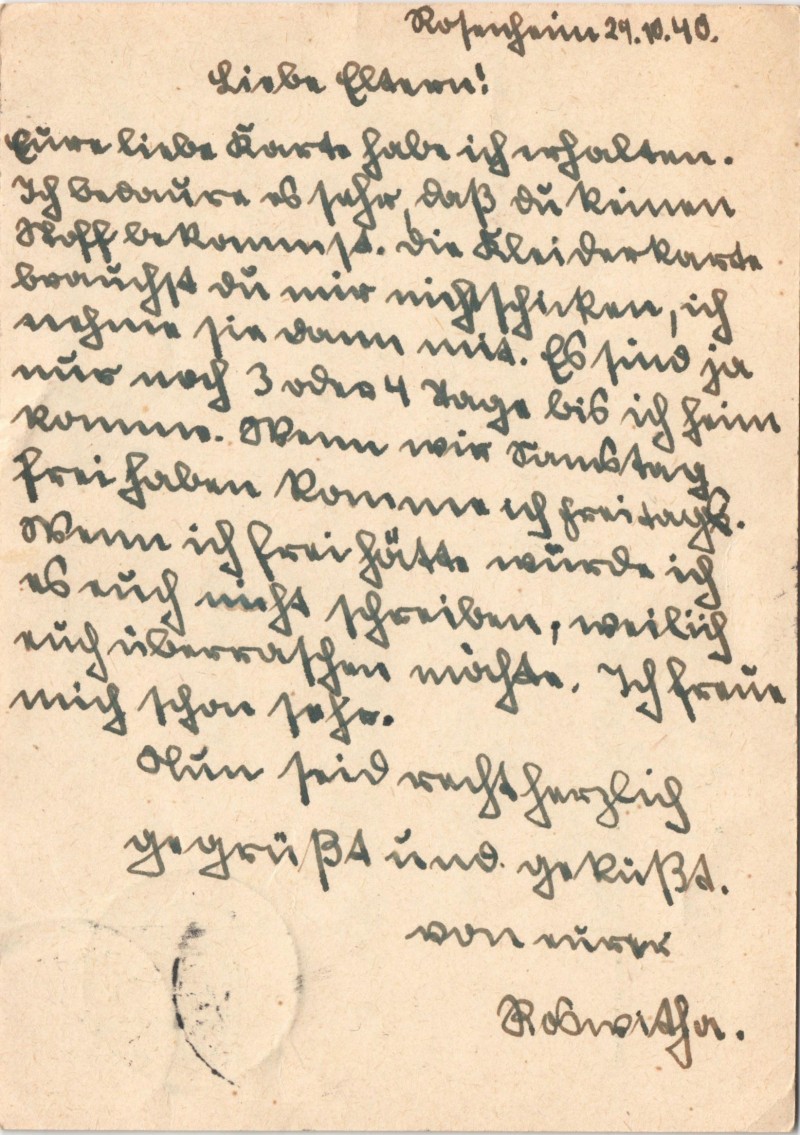 Rosenheim 29.10.40.
Liebe Eltern!
Eure liebe Karte habe ich erhalten.
Ich bedaure es sehr, daß du keinen
Stoff bekommst. Die Kleiderkarte
brauchst du mir nicht schicken, ich
nehme sie dann mit. Es sind ja
nur noch 3 oder 4 Tage bis ich heim
komme. Wenn wir Samstag
frei haben komme ich freitags.
Wenn ich frei hätte würde ich
es euch nicht schreiben, weil ich
euch überraschen möchte. Ich freue
mich schon sehr.
Nun seid recht herzlich
gegrüßt und geküßt.
von eurer
Roswitha.